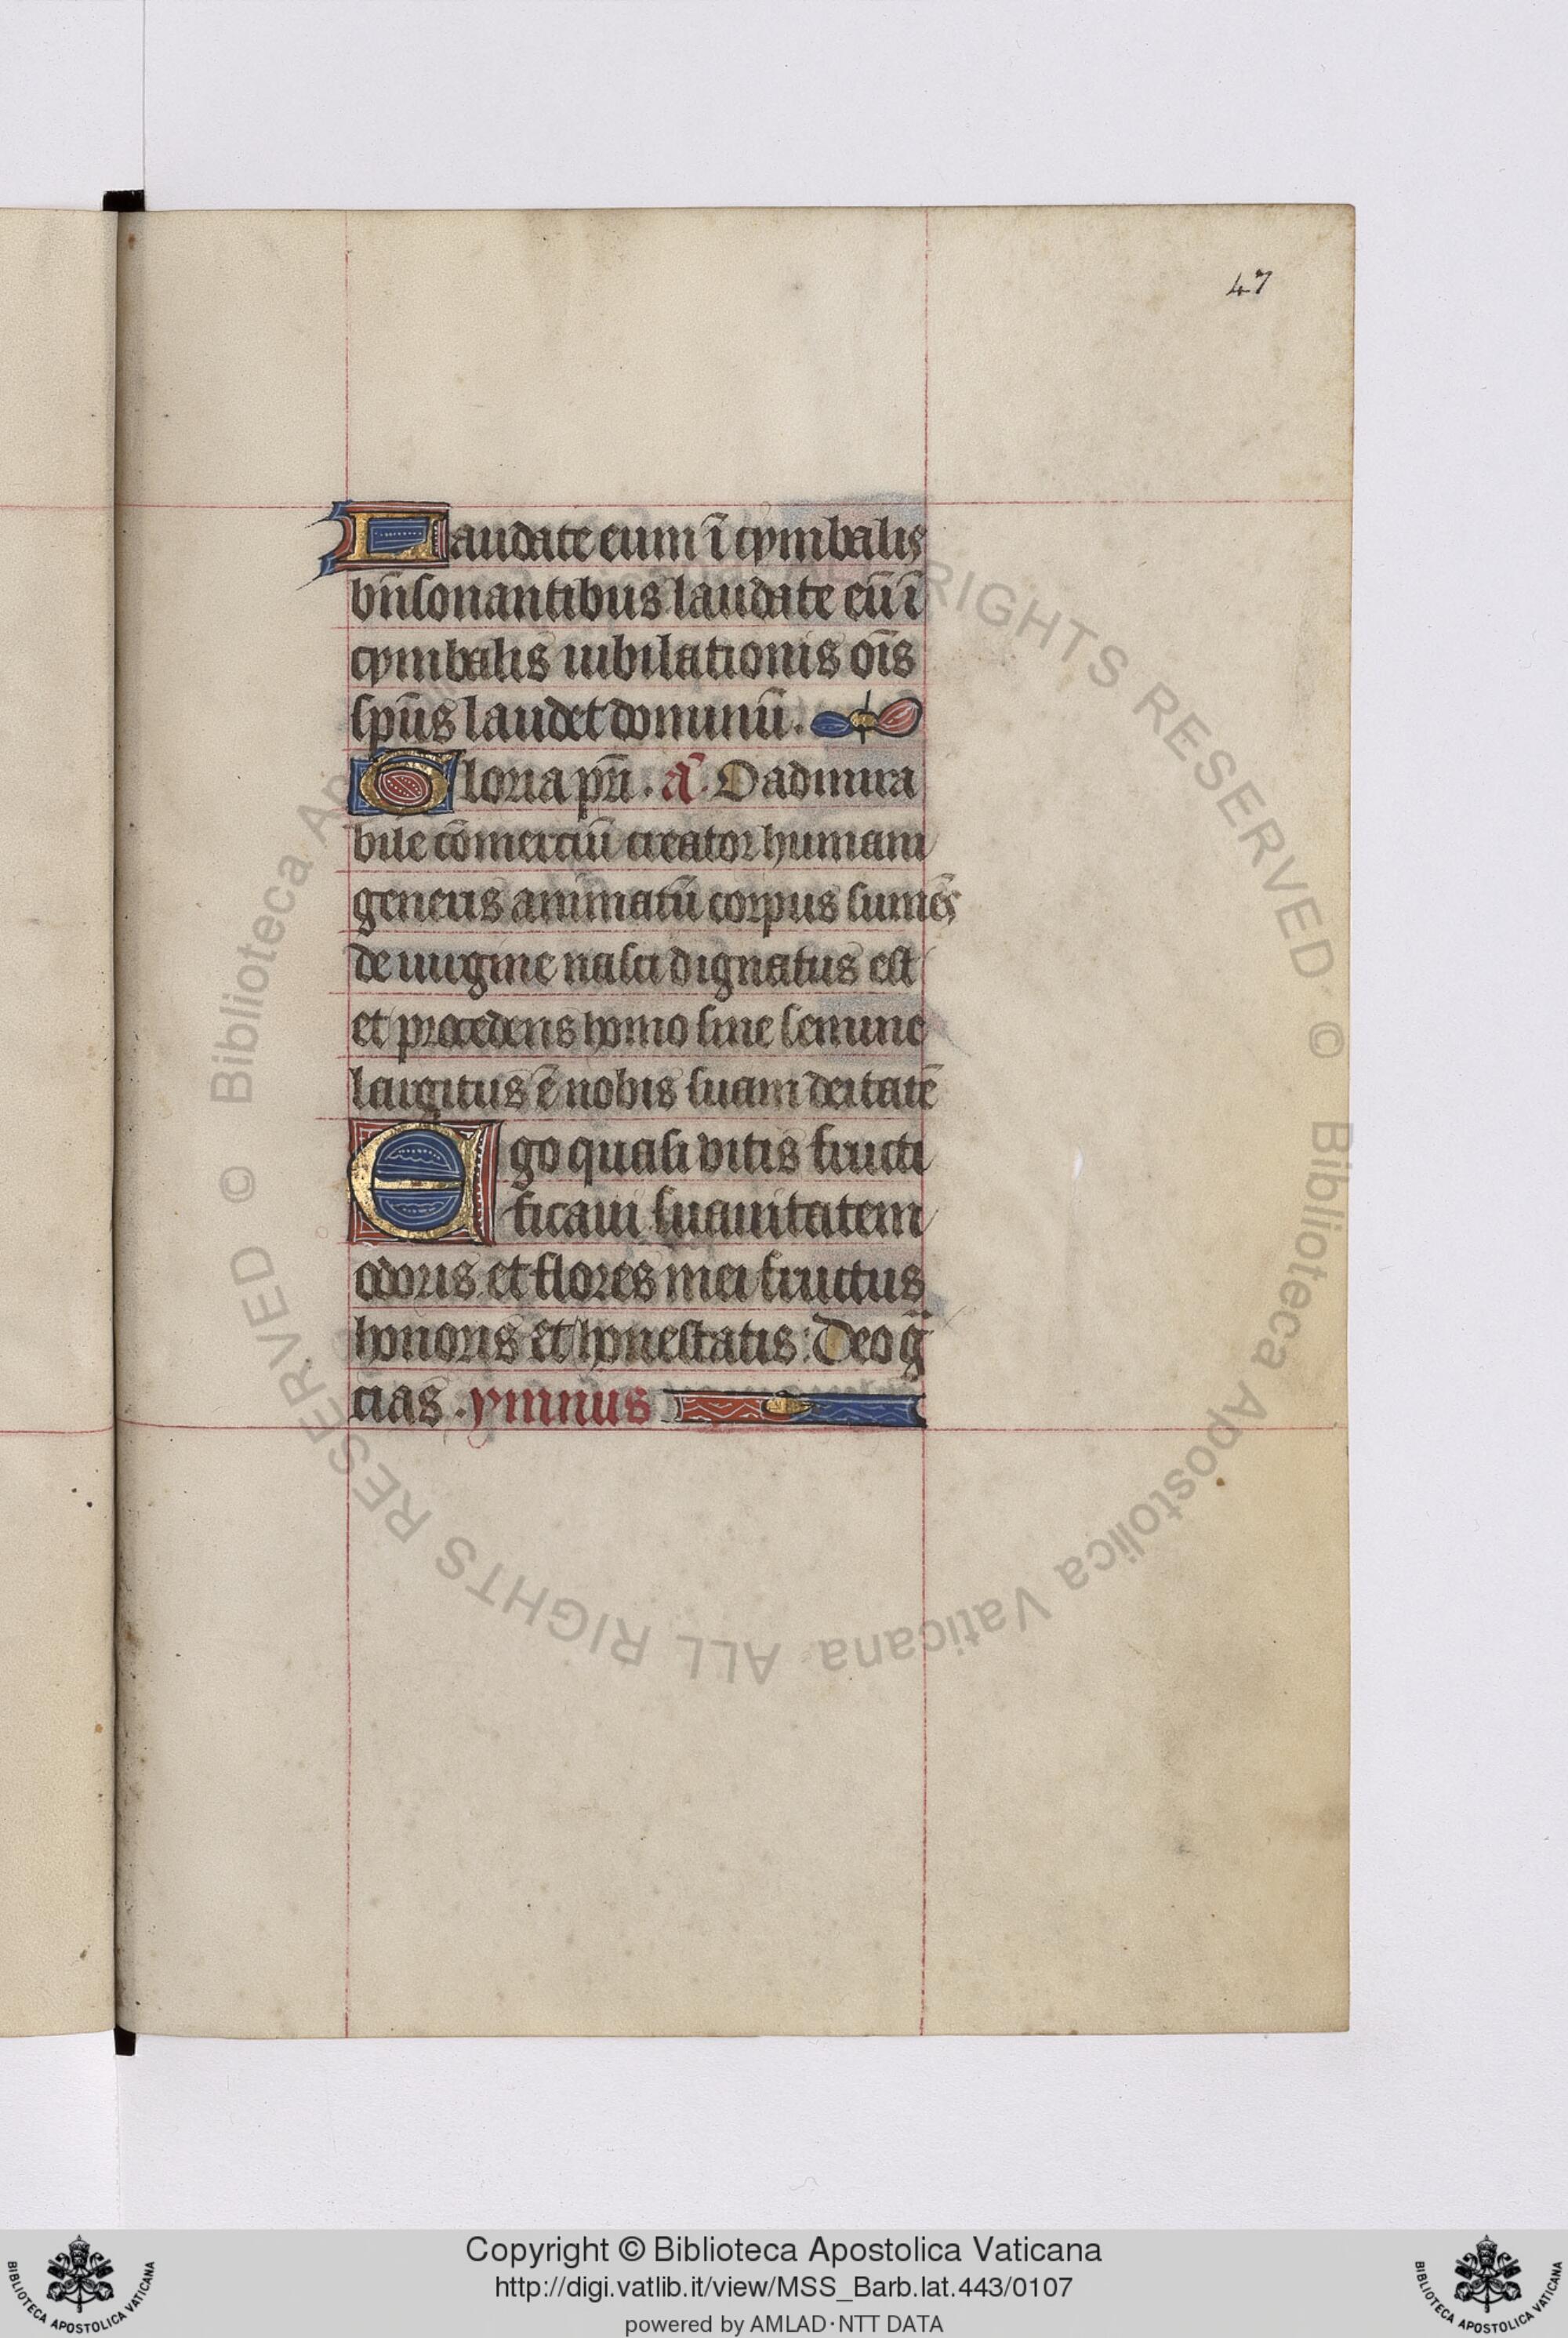 47
Laudate eum ī cymbalis
bn̄sonantibus laudate eū ī
cymbalis iubilationis oīs
spūs laudet dominū.
Gloria pr̄i. a᷈. O admira
bile cōmerciū creator humani
generis animatū corpus sumēs
de uirgine nasci dignatus est
et procedens homo sine semine
largitus ē nobis suam deitatē
Ego quasi vitis fructi
ficaui suauitatem
odoris et flores mei fructus
honoris et honestatis: Deo gͣ
cias. ymnus
© Biblioteca Apostolica Vaticana ALL RIGHTS RESERVED © Biblioteca Apostolica Vaticana ALL RIGHTS RESERVED
BIBLIOTECA APOSTOLICA VATICANA
Copyright © Biblioteca Apostolica Vaticana
http://digi.vatlib.it/view/MSS_Barb.lat.443/0107
powered by AMLAD·NTT DATA
BIBLIOTECA APOSTOLICA VATICANA